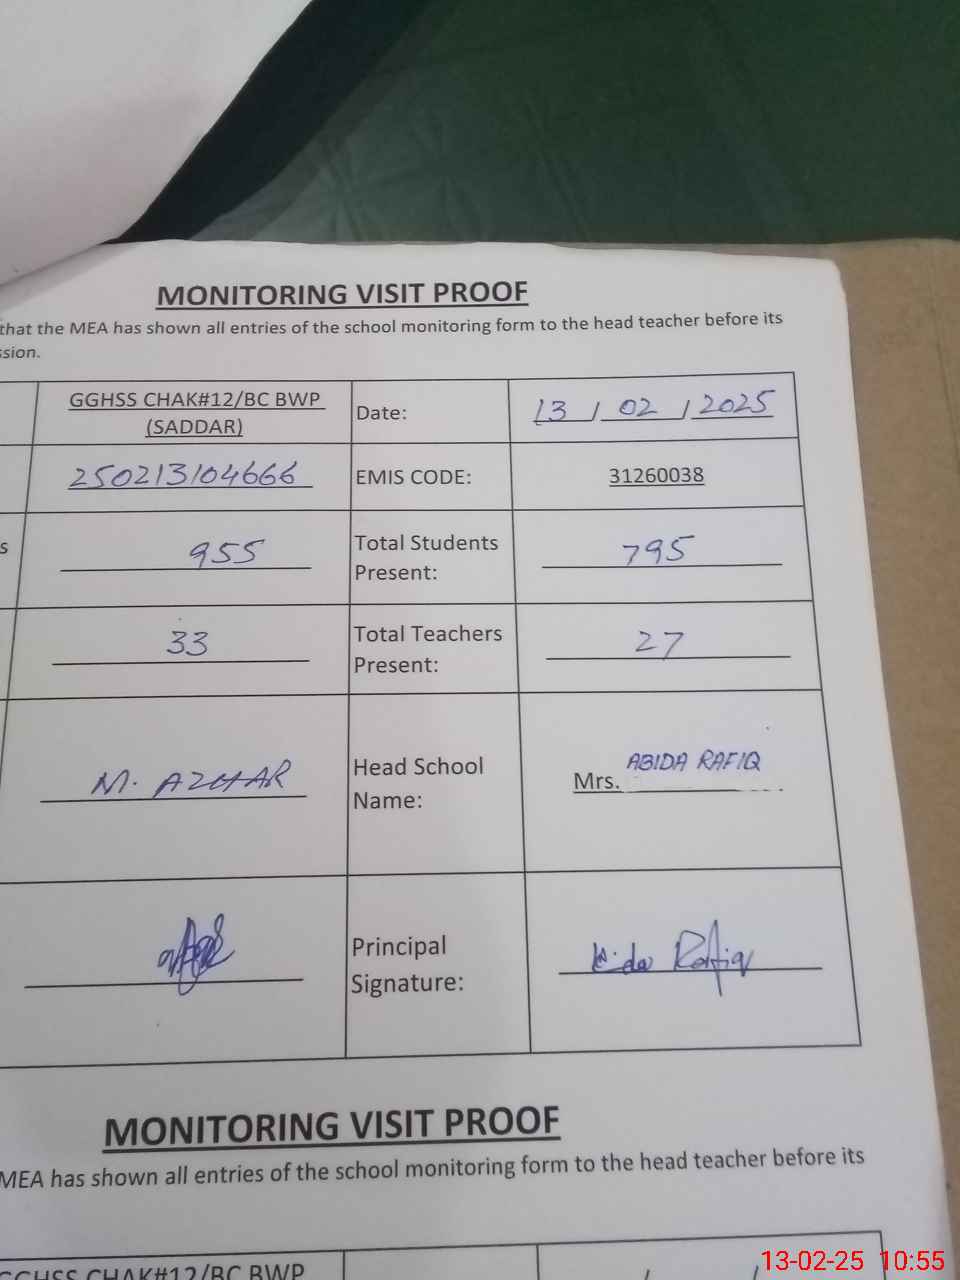 MONITORING VISIT PROOF
that the MEA has shown all entries of the school monitoring form to the head teacher before its
ssion.
GGHSS CHAK#12/BC BWP
(SADDAR)
Date:
13 / 02 / 2025
250213104666
EMIS CODE:
31260038
s
955
Total Students
Present:
795
33
Total Teachers
Present:
27
M. AZHAR
Head School
Name:
Mrs. ABIDA RAFIQ
Principal
Signature:
Abida Rafiq
MONITORING VISIT PROOF
MEA has shown all entries of the school monitoring form to the head teacher before its
GGHSS CHAK#12/BC BWP
/ /
13-02-25 10:55